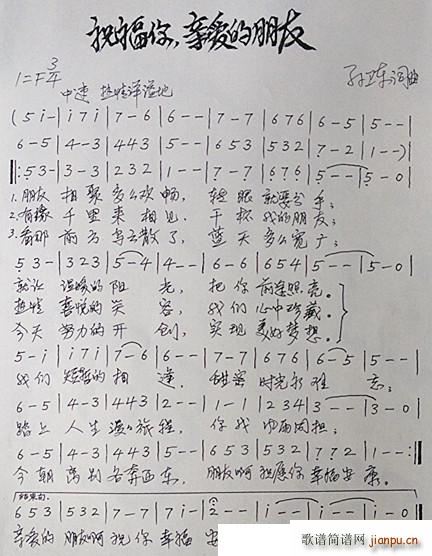 祝福你,亲爱的朋友
1=F 3/4
中速 热情洋溢地
孙卫东词曲
(5 i - | i 7 i | 7 - 6 | 6 - - | 7 - 7 | 6 7 6 | 6 - 5 | 5 - - |
6 - 5 | 4 - 3 | 4 4 3 | 5 - - | 6 5 3 | 5 3 2 | 7 - 2 | 1 - -) |
‖: 5 3 - | 3 - 3 | 2 3 2 | 1 - - | 7 - 7 | 6 7 6 | 5 - - | 5 - 0 |
1. 朋友 相聚多么欢畅, 转眼就要分手;
2. 有缘 千里来相见, 干杯我的朋友;
3. 看那 前方乌云散了, 蓝天多么宽广;
5 3 - | 3 2 3 | 5 - 4 | 4 - - | 6 - 6 | 6 5 4 | 5 - - | 5 - 0 |
就让 温暖的阳光, 把你前途照亮。
热情 喜悦的笑容, 我们心中珍藏。
今天 努力的开创, 实现美好梦想。
5 - i | i 7 i | 7 - 6 | 6 - - | 7 - 7 | 6 7 6 | 6 - 5 | 5 - - |
我们 短暂的相逢, 甜蜜时光永难忘;
6 - 5 | 4 - 3 | 4 4 3 | 2 - - | 1 - 1 | 2 3 4 | 3 - - | 3 - 0 |
踏上人生漫漫旅程, 你我
6 - 5 | 4 - 3 | 4 4 3 | 5 - - | 6 5 3 | 5 3 2 | 7 7 2 | 1 - - :‖
今朝离别各奔西东, 朋友啊祝愿你幸福安康。
结束句
6 5 3 | 5 3 2 | 7 - 7 | i - | 2 - - | i - - | i - - | i - 0 ‖
亲爱的朋友啊祝你幸福安
歌谱简谱网
jianpu.cn